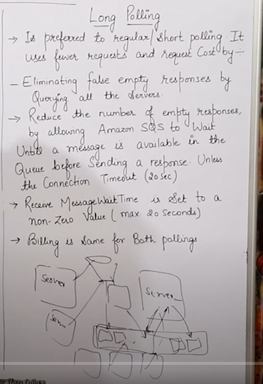 Long Polling
→ Is preferred to regular/short polling. It
uses fewer requests and request Cost by:-
- Eliminating false empty responses by
Querying all the Servers.
→ Reduce the number of empty responses,
by allowing Amazon SQS to Wait
Until a message is available in the
Queue before Sending a response. Unless
the Connection Timeout (20sec)
→ Receive MessageWaitTime is Set to a
non-Zero Value (max 20 Seconds)
→ Billing is Same for Both pollings
Server
Server